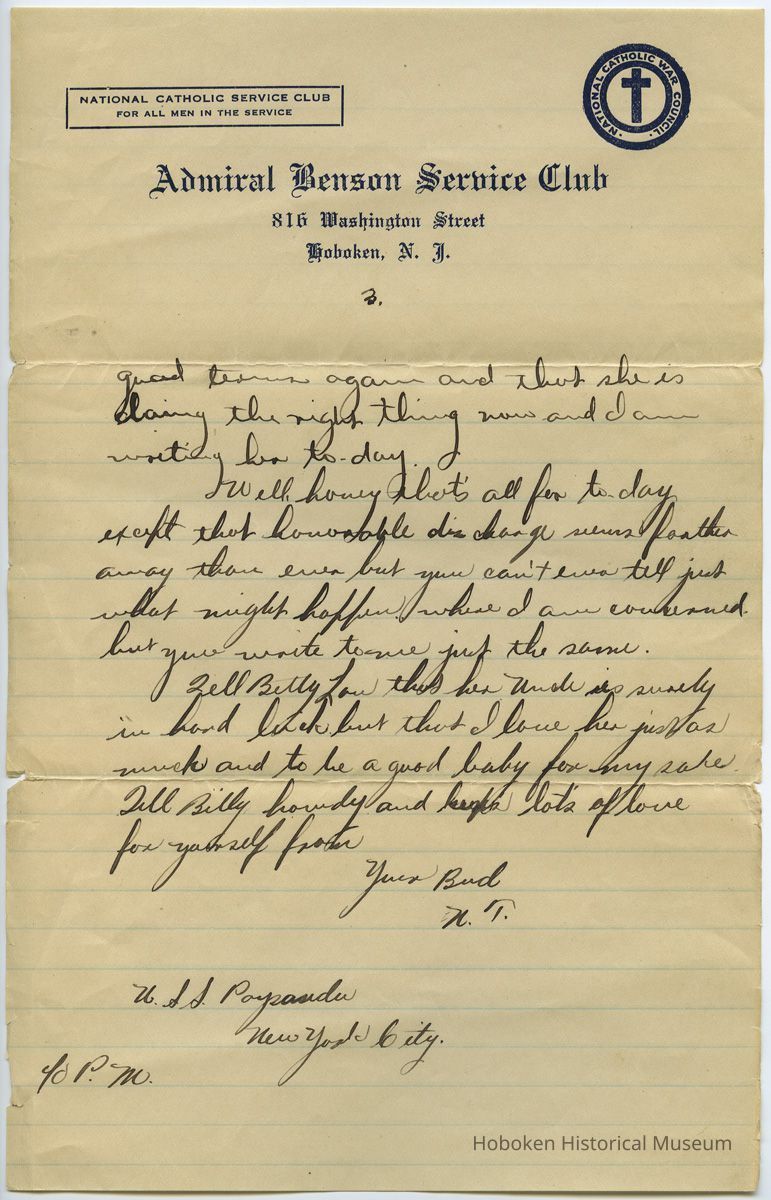 NATIONAL CATHOLIC SERVICE CLUB
FOR ALL MEN IN THE SERVICE
NATIONAL CATHOLIC WAR COUNCIL
Admiral Benson Service Club
816 Washington Street
Hoboken, N. J.
3.
good terms again and that she is
doing the right thing now and I am
writing her to-day.
Well, honey that's all for to-day
except that honorable discharge seems farther
away than ever but you can't ever tell just
what might happen where I am concerned.
but you write to me just the same.
Tell Betty Lou that her Uncle is surely
in hard luck but that I love her just as
much and to be a good baby for my sake.
Tell Billy howdy and keeps lot's of love
for yourself from
Your Bud
N. T.
U.S.S. Paysandu
New York City.
c/o P. M.
Hoboken Historical Museum